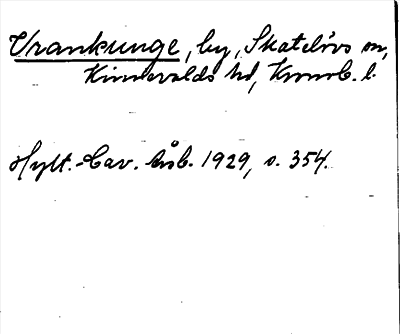 Vrankunge, by, Skatelövs sn,
Kinnevalds hd, Kronob. l.
Hylt.-Cav. årsb. 1929, s. 354.